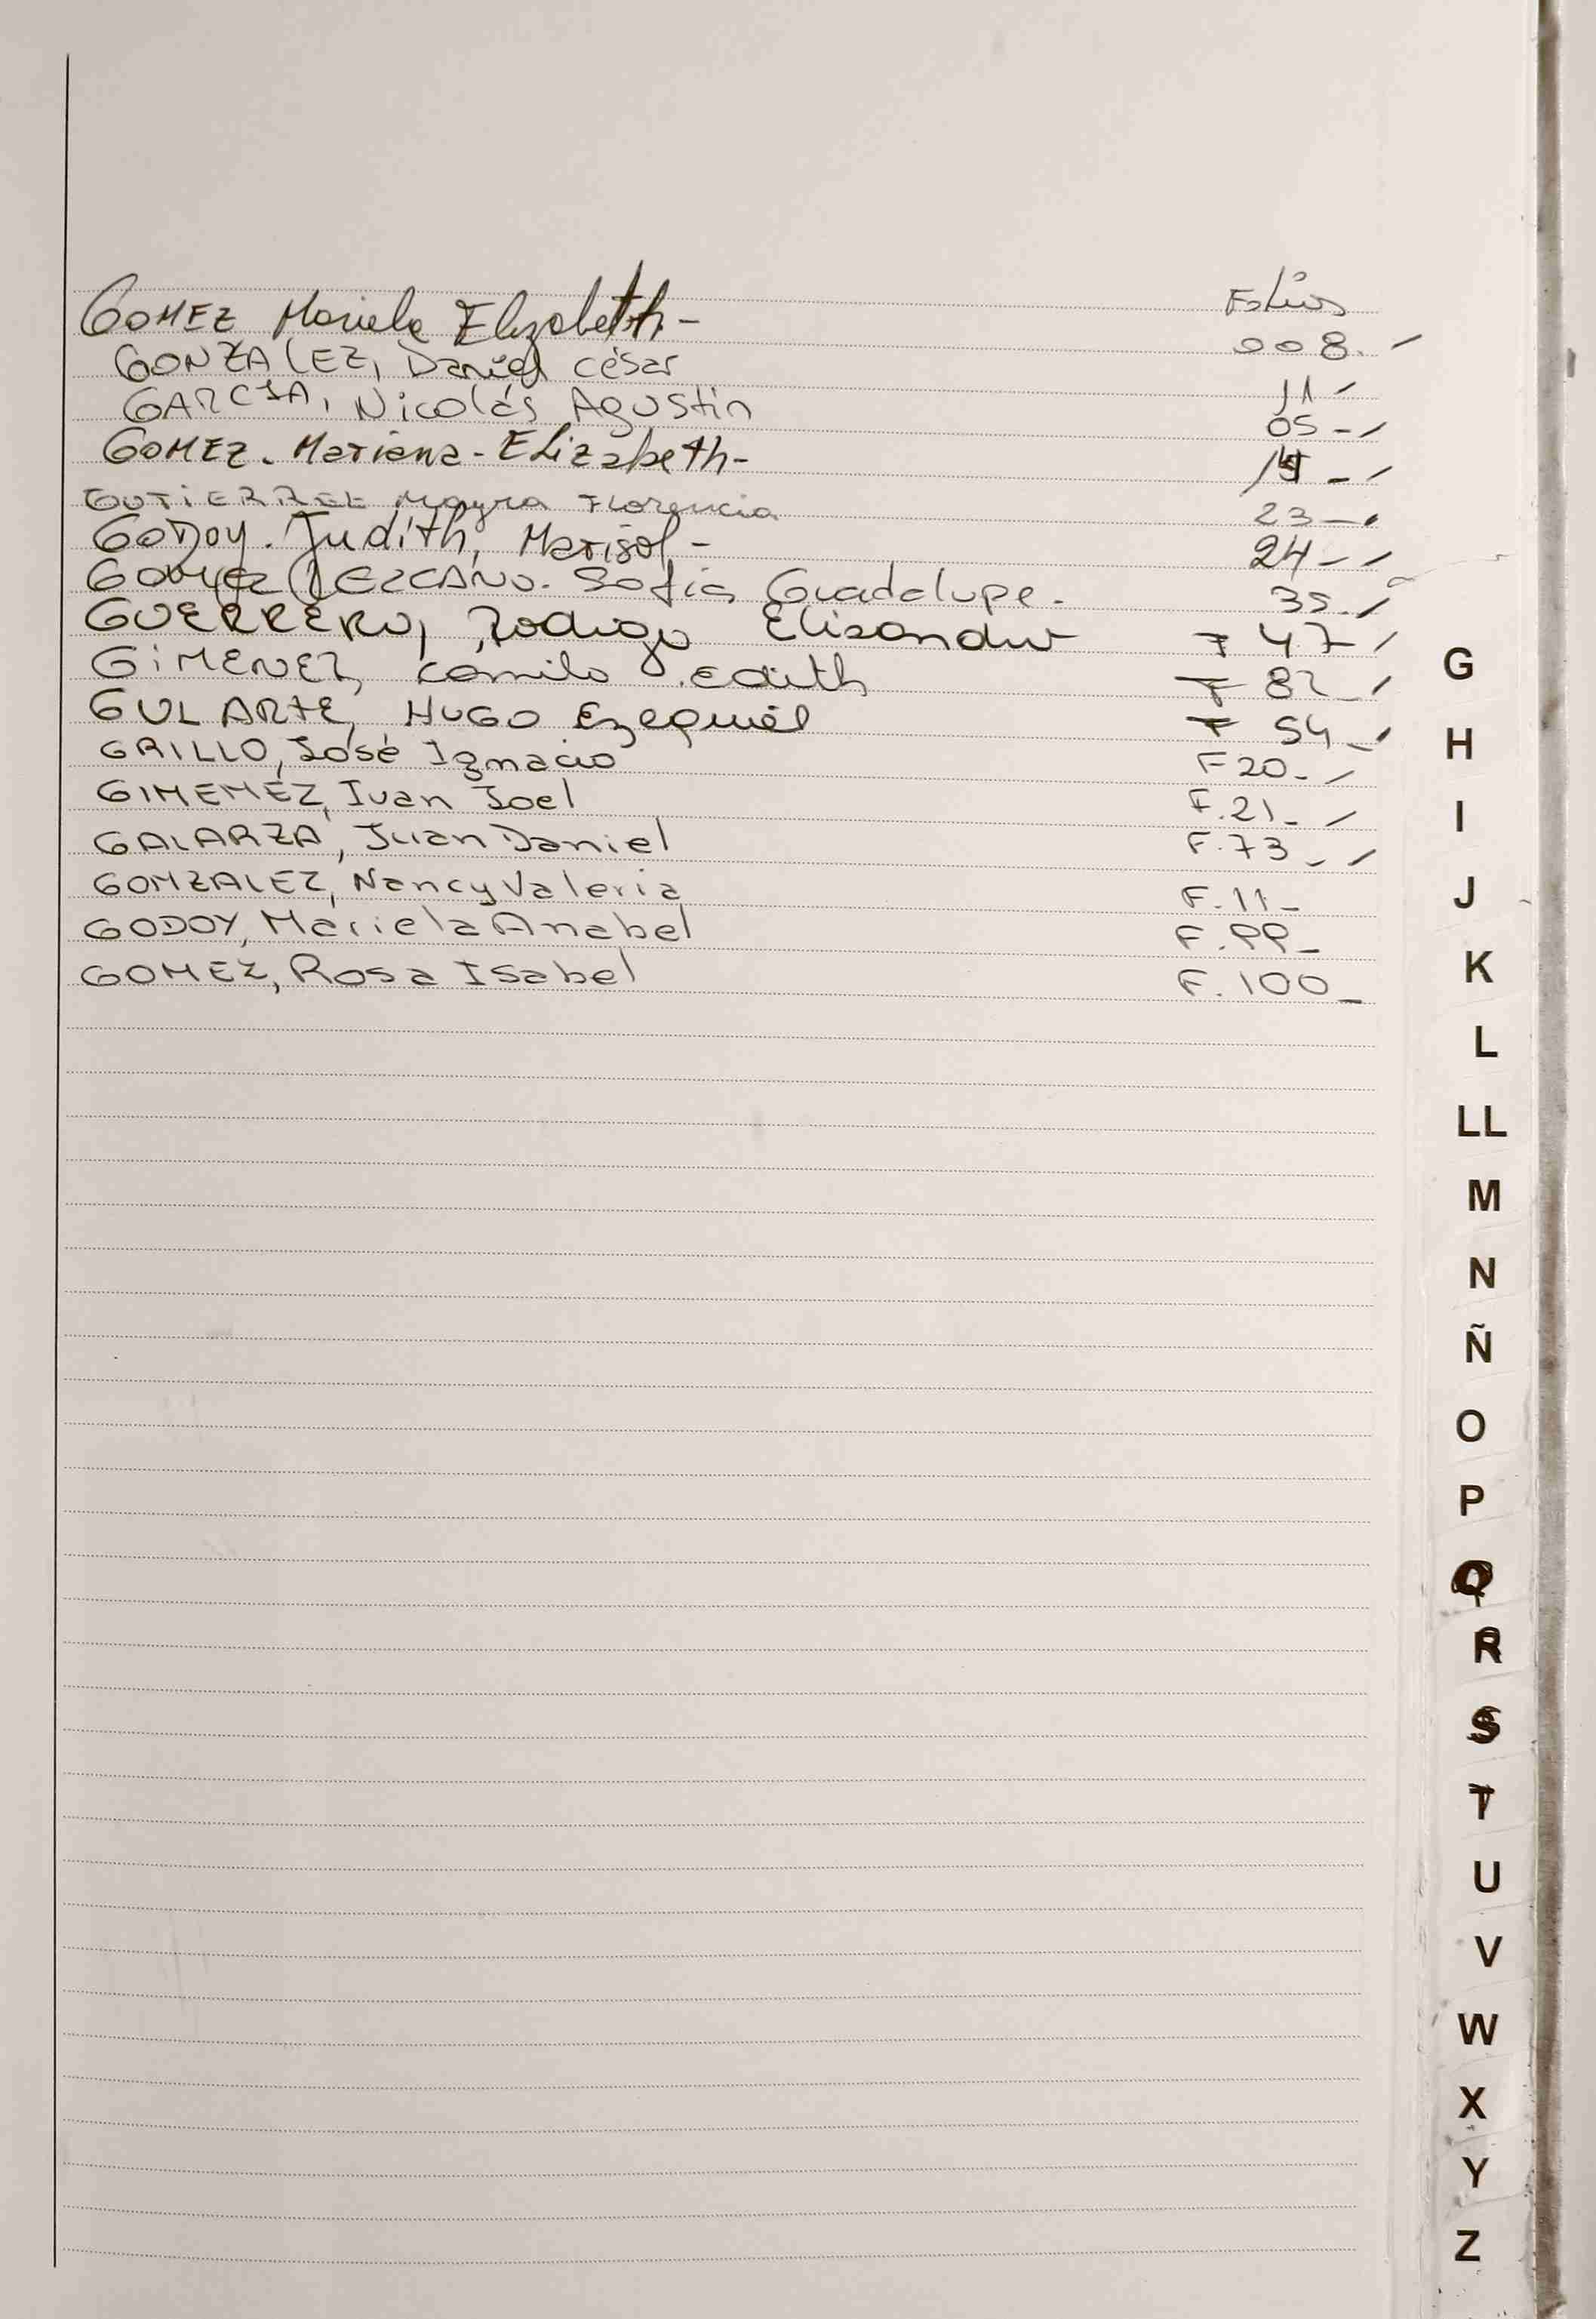 Folios
GOMEZ Mariela Elizabeth.- 008. -
GONZALEZ, Daniel César 11 -
GARCIA, Nicolás Agustín 05 - -
GOMEZ. Mariana - Elizabeth - - -
GUTIERREZ Mayra Florencia 23 - -
GODOY. Judith, Marisol - 24 - -
GOMEZ LEZCANO. Sofía Guadalupe. 35. -
GUERRERO, Rodrigo Elisandro F 47 -
GIMENEZ, Camila Edith F 82 - -
GULARTE, HUGO Ezequiel F 54 - -
GRILLO, José Ignacio F 20 - -
GIMENEZ, Ivan Joel F. 21 - -
GALARZA, Juan Daniel F. 73 - -
GONZALEZ, Nancy Valeria F. 11 -
GODOY, Mariela Anabel F. 99 -
GOMEZ, Rosa Isabel F. 100 -
G
H
I
J
K
L
LL
M
N
Ñ
O
P
Q
R
S
T
U
V
W
X
Y
Z